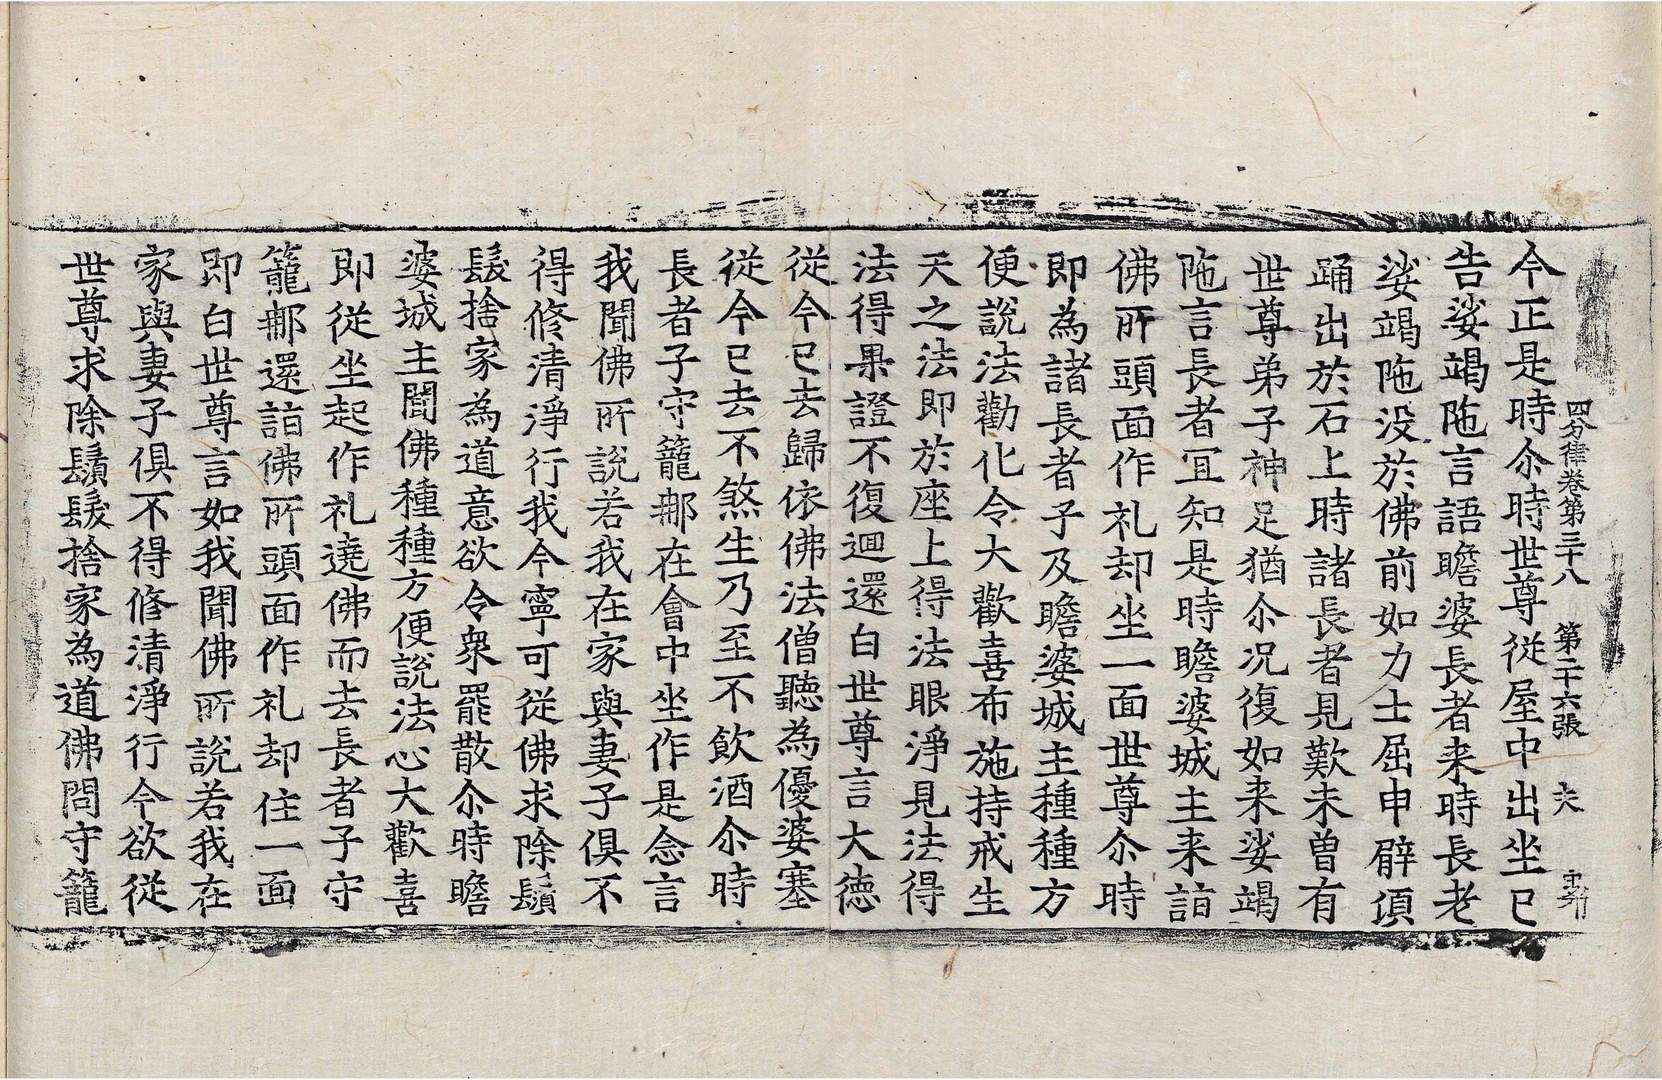 四分律卷第三十八　第二十六張　夫
今正是時尒時世尊從屋中出坐已
告娑竭陁言語瞻婆長者来時長老
娑竭陁没於佛前如力士屈申臂頃
踊出於石上時諸長者見歎未曽有
世尊弟子神足猶尒况復如来娑竭
陁言長者冝知是時瞻婆城主来詣
佛所頭面作礼却坐一面世尊尒時
即為諸長者子及瞻婆城主種種方
便說法勸化令大歡喜布施持戒生
天之法即於座上得法眼淨見法得
法得果證不復迴還白世尊言大德
從今已去歸依佛法僧聽為優婆塞
從今已去不煞生乃至不飲酒尒時
長者子守籠那在會中坐作是念言
我聞佛所說若我在家與妻子俱不
得修清淨行我今寧可從佛求除鬚
髮捨家為道意欲令衆罷散尒時瞻
婆城主聞佛種種方便說法心大歡喜
即從坐起作礼遶佛而去長者子守
籠那還詣佛所頭面作礼却住一面
即白世尊言如我聞佛所說若我在
家與妻子俱不得修清淨行今欲從
世尊求除鬚髮捨家為道佛問守籠